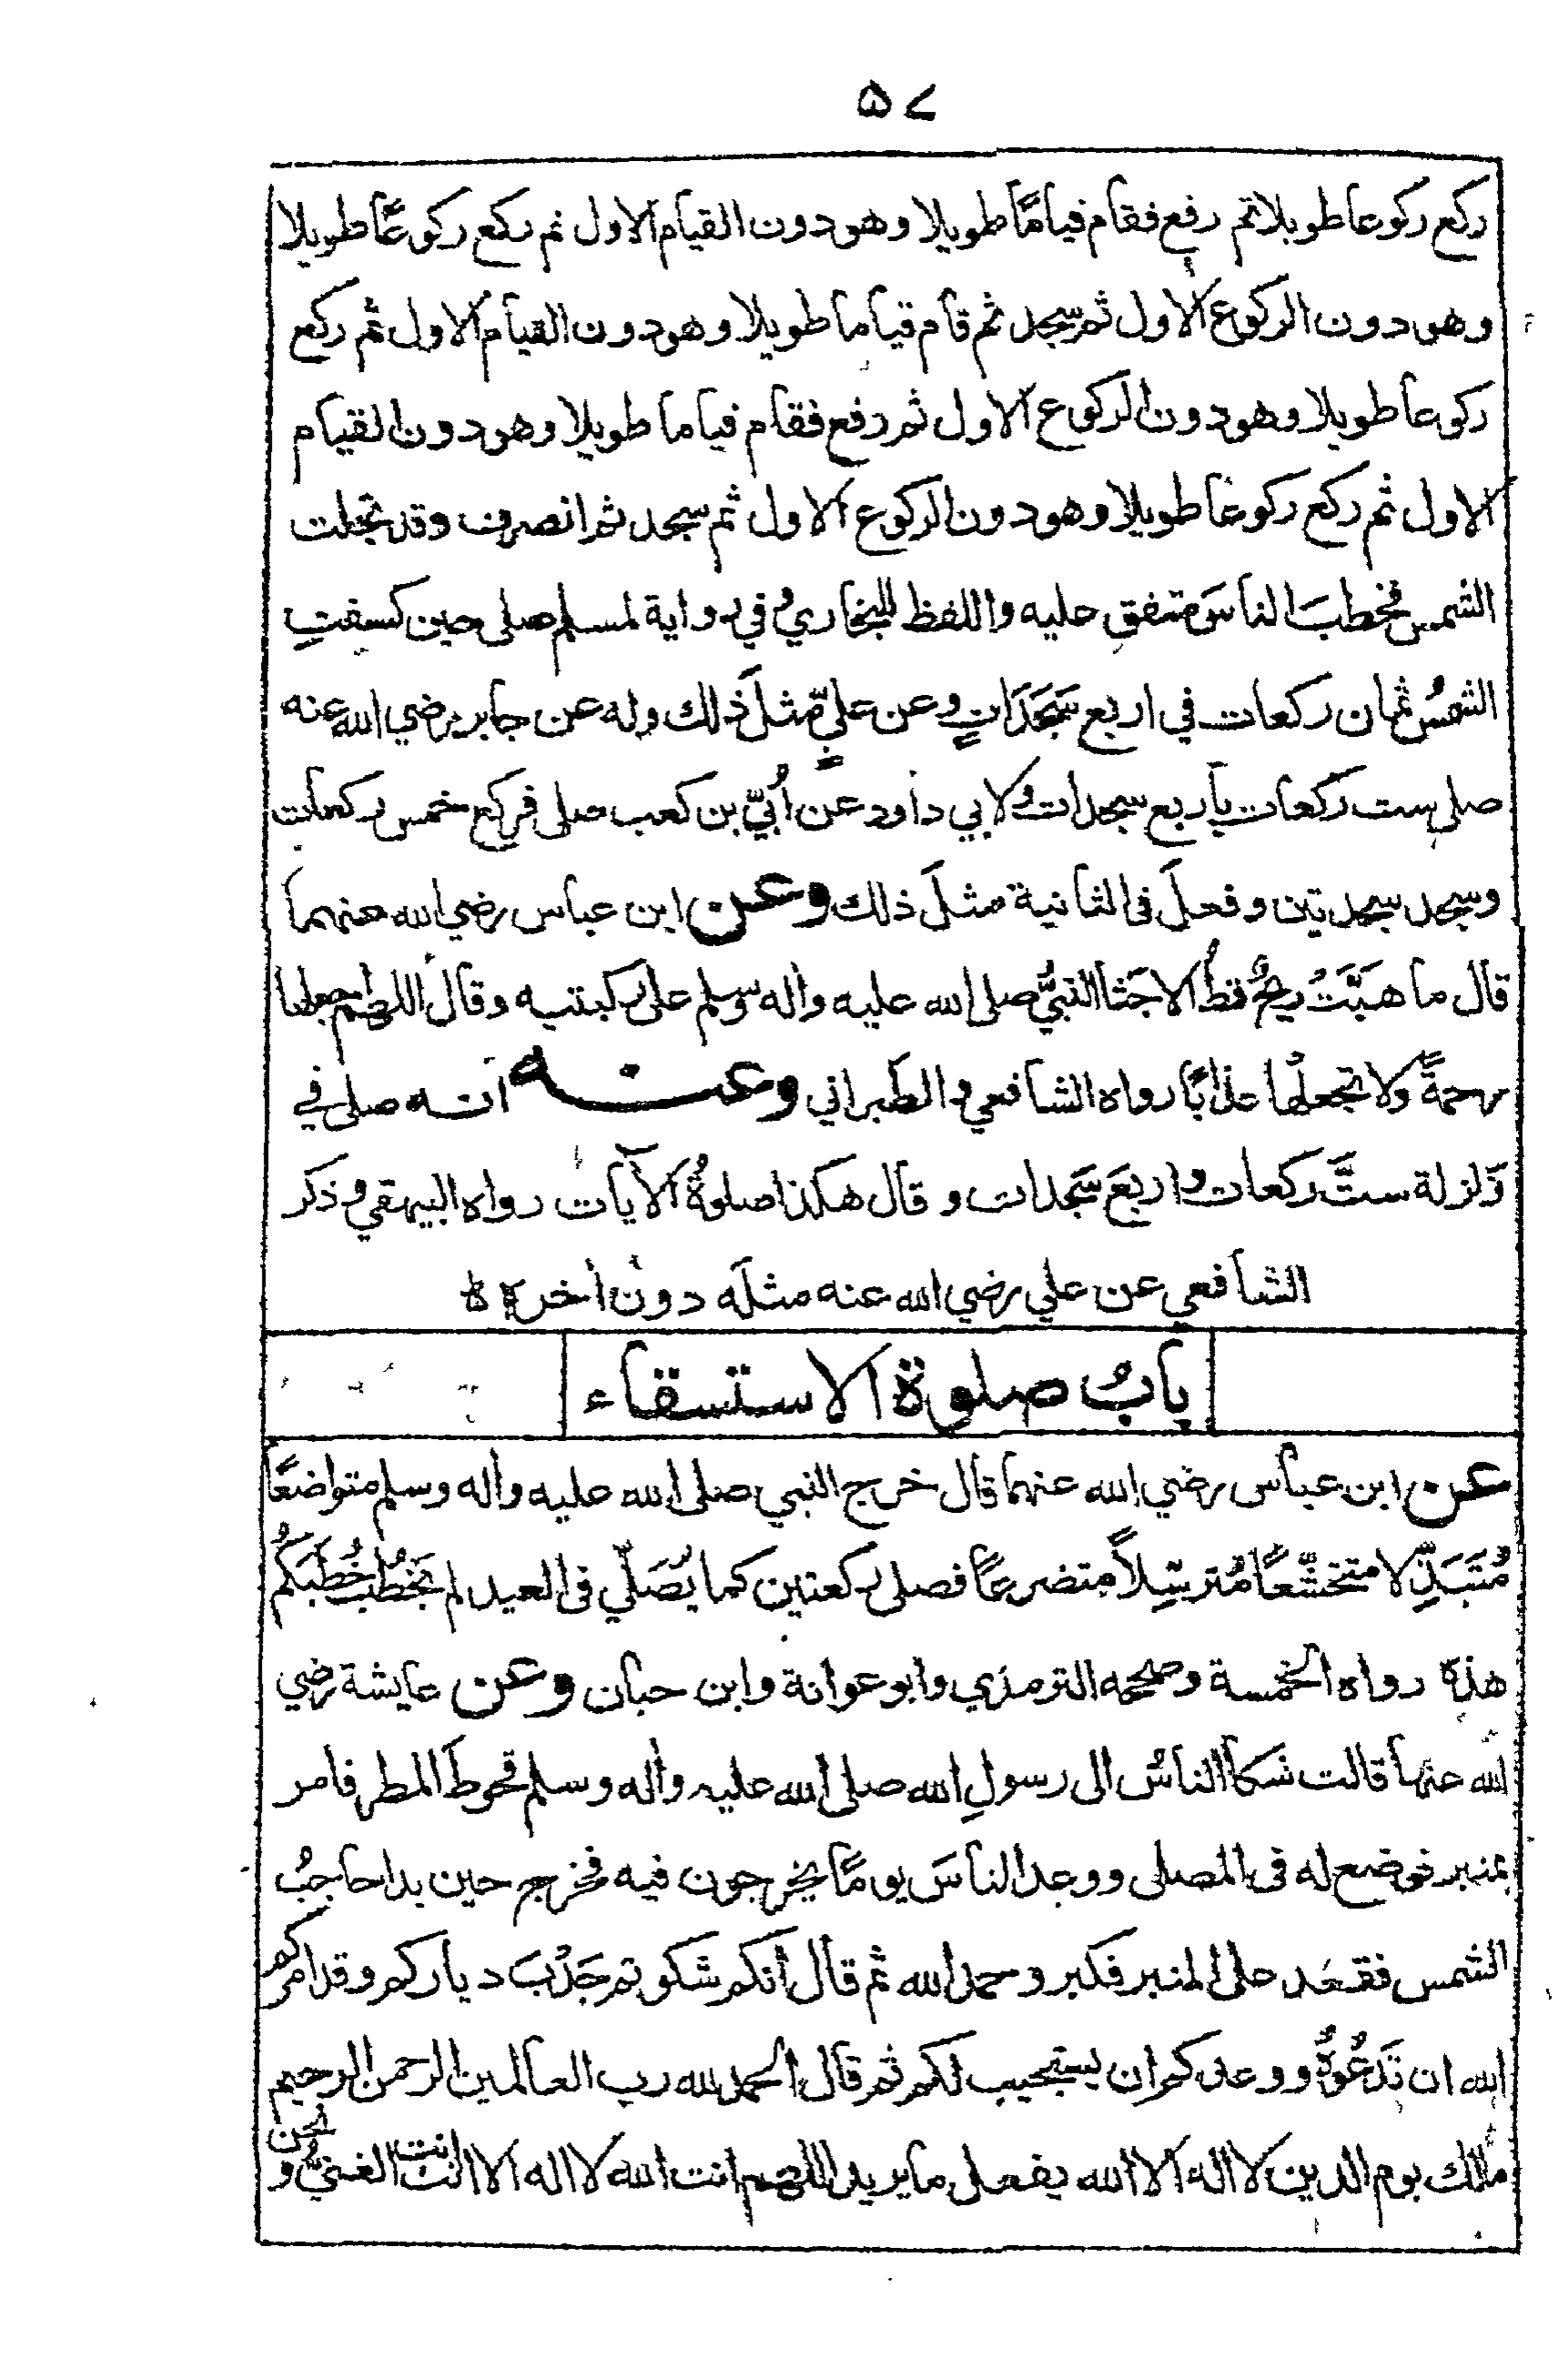 ٥٧
ركع ركوعا طويلا ثم رفع فقام قيامًا طويلا وهو دون القيام الاول ثم ركع ركوعًا طويلا
وهو دون الركوع الاول ثم سجد ثم قام قياما طويلا وهو دون القيام الاول ثم ركع
ركوعا طويلا وهو دون الركوع الاول ثم رفع فقام قياما طويلا وهو دون القيام
الاول ثم ركع ركوعا طويلا وهو دون الركوع الاول ثم سجد ثم انصرف وقد تجلت
الشمس فخطبَ الناسَ متفق عليه واللفظ للبخاري وفي رواية لمسلم صلى حين كسفتِ
الشمسُ ثمان ركعات في اربع سَجَدَاتٍ وعن عليٍّ مثلَ ذلك وله عن جابر رضي الله عنه
صلى ست ركعات بأربع سجدات ولابي داود عن اُبَيّ بن كعب صلى فركع خمس ركعات
وسجد سجدتين وفعلَ في الثانية مثلَ ذلك وعن ابن عباس رضي الله عنهما
قال ما هبَّتْ ريحٌ قطُّ الا جَثا النبيُّ صلى الله عليه واله وسلم على ركبتيه وقال اللهم اجعلها
رحمةً ولا تجعلْها عذابًا رواه الشافعي والطبراني وعنه انه صلى في
زلزلة ستَّ ركعات واربعَ سَجَدات وقال هكذا صلوةُ الآيات رواه البيهقي وذكر
الشافعي عن علي رضي الله عنه مثلَه دون أخره ه
بابُ صلوة الاستسقاء
عن ابن عباس رضي الله عنهما قال خرج النبي صلى الله عليه واله وسلم متواضعًا
مُتَبَذِّلا متخشّعًا مُترسِّلاً متضرعًا فصلى ركعتين كما يُصَلّي في العيد لم يَخْطُبْ خُطْبَتَكُمْ
هذه رواه الخمسة وصححه الترمذي وابو عوانة وابن حبان وعن عايشة رضي
الله عنها قالت شكا الناسُ الى رسولِ الله صلى الله عليه واله وسلم قحوطَ المطر فامر
بمنبر فوضع له في المصلى ووعد الناسَ يومًا يخرجون فيه فخرج حين بدا حاجبُ
الشمس فقعَد على المنبر فكبر وحمد الله ثم قال انكم شكوتم جَدْبَ دياركم وقد امركم
الله ان تَدعُوهُ ووعدكم ان يستجيب لكم ثم قال الحمد لله رب العالمين الرحمن الرحيم
مالك يوم الدين لا اله الا الله يفعل ما يريد اللهم انت الله لا اله الا انت انت الغنيُّ و نحن